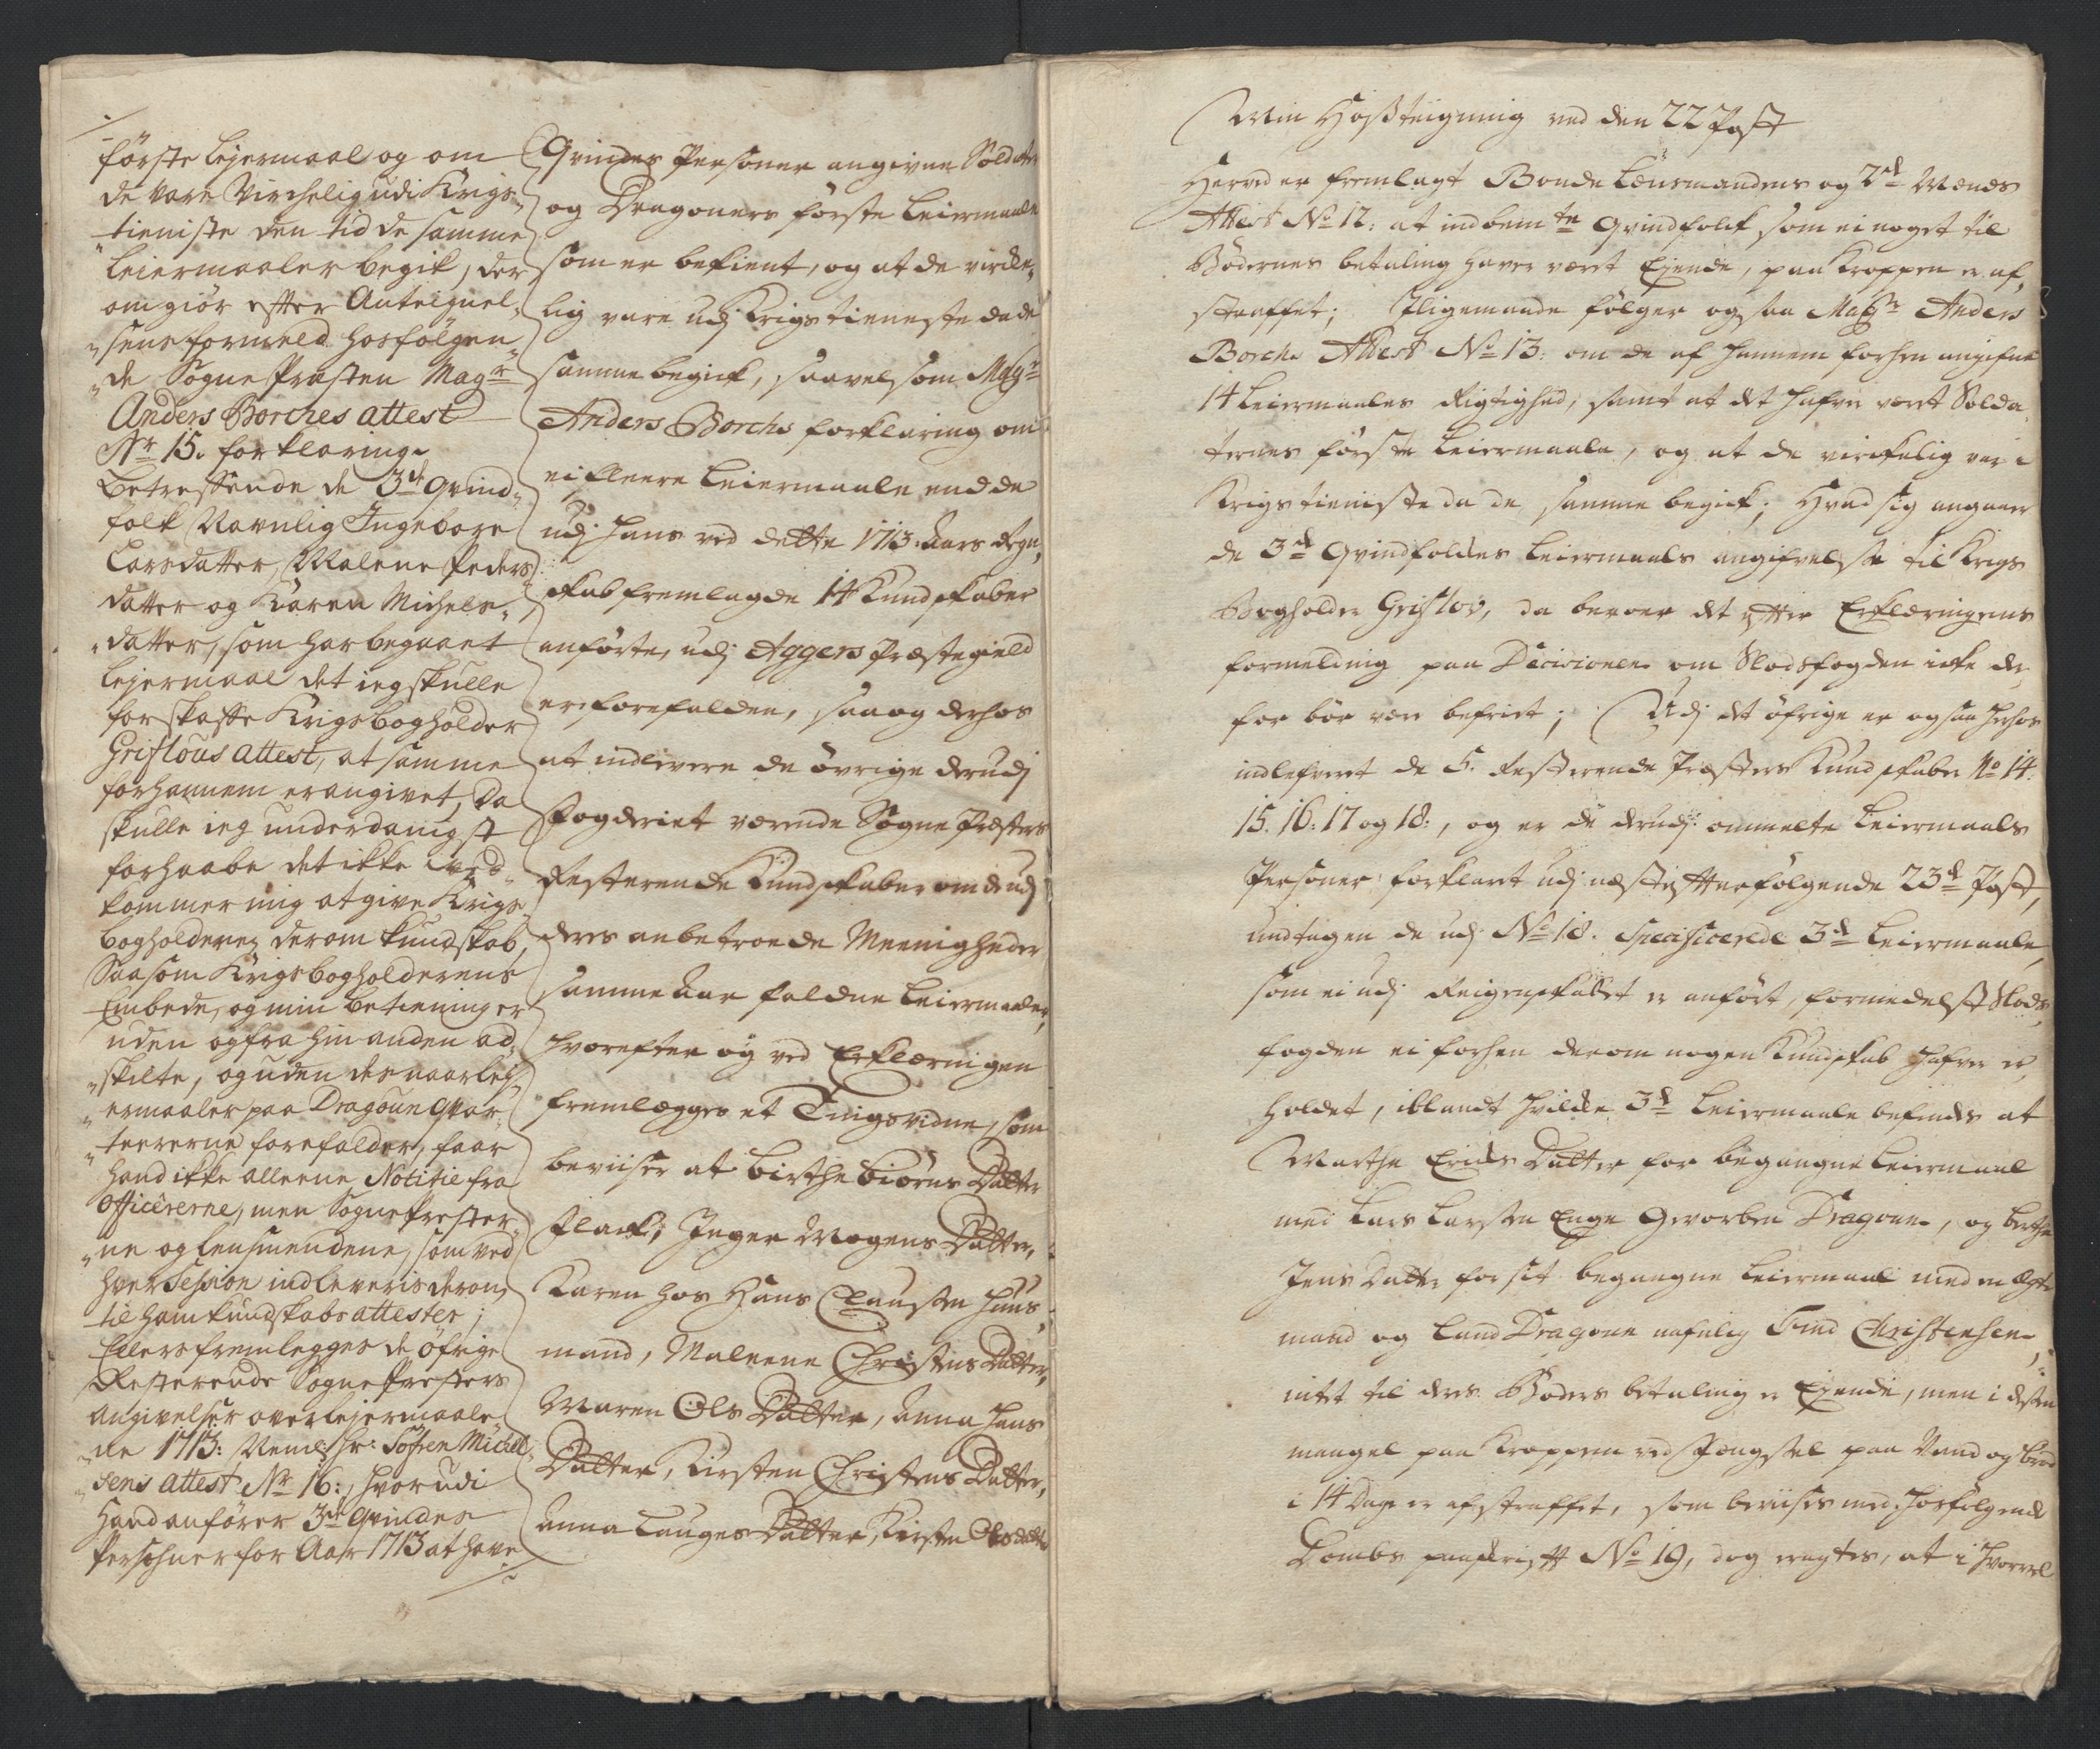 første Lejermaal og om
de vare Virchelig udi Krigs„
tieniste den tid de samme
Leiermaaler begik, der
om giør efter Anteignel„
„sens formeld hosfølgen„
„de Sogne Præsten Magr
Anders Borches attest
Nr 15. forklaring.
Betreffende de 3de Qvind„
folk Navnlig Ingeborg
Larsdatter, Malene Peders
datter og Karen Michels„
„datter, som har begaaet
Lejermaal det ieg skulle
forskaffe Krigsbogholder
Griflous attest, at samme
for hannem er angivet, Da
skulle ieg underdanigst
forhaabe det ikke ved„
kommer mig at give Krigs„
bogholderen derom kundskab,
Saasom Krigsbogholderens
Embede, og min betiening er
uden og fra hinanden ad„
„skilte, og uden des naar lej„
„ermaaler paa Dragoun Qvar„
„teererne forefalder, faar
hand ikke alleene Notitie fra
Officererne, men Sogne Prester„
„ne og lensmendene, som ved
hver Session indleveris derom
til ham kundskabs attester;
Ellers fremlegges de øfrige
Resterende Sogne Presters
angivelser over lejermaale„
„ne 1713: Neml: Hr: Søfren Michel„
„sens attest Nr 16:, hvorudi
Hand anfører 3de Qvindes
Persohner for Aar 1713 at have
Qvindes Personer angivne Soldater
og Dragoners første Leiermaale
som er befient, og at de virke„
lig vare udj Krigstieneste da de
samme begick, saavelsom Magr
Anders Borchs forklaring om
ei fleere Leiermaale end de
udj hans ved dette 1713. Aars Regn„
skab fremlagde 14 Kundskaber
anførte, udj Aggers Præstegield
er forefalden, saa og derhos
at indlevere de øvrige derudj
Fogderiet værende Sogne Præsters
Resterende Kundskaber om de udj
deres anbetroede Meenigheder
samme Aar faldne Leiermaaler,
hvorefter og ved Erklæringen
fremlægges et Tingsvidne, som
beviiser at Birthe Biørns Datter
Flack, Inger Mogens Datter,
Karen hos Hans Clausen Huus„
mand, Maleene Christens Datter,
Maren Ols Datter, Anna Hans
Datter, Kirsten Christens Datter,
Anna Lauges Datter, Kirsten Olsdatter
Min Hoßteigning ved den 22 Post
Herved er fremlagt Bonde Lænsmandens og 2de Mænds
Attest No 12: at indbemte Qvindfolck som ei noget til
Bødernes betaling haver været Ejende, paa Kroppen er af„
straffet; Iligemaade følger og saa Magr Anders
Borchs Attest No 13: om de af hannem forhen angifne
14 Leiermaales Rigtighed, samt at det hafver været Solda„
ternes første Leiermaale, og at de virckelig var i
Krigstieniste da de samme begick; Hvad sig angaaer
de 3de Qvindfolckes Leiermaals angifvelse til Krigs
Bogholder Griflov, da beroer det efter Erklæringens
formelding paa Decisionen om Slodsfogden icke der„
for bør være befriet; Udj det øfrige er og saa herhos
indlefveret de 5. Resterende Præsters Kundskaber No 14.
15. 16. 17 og 18:, og er de derudj ommelte Leiermaals
Personer forklaret udj næst efterfølgende 23de Post,
undtagen de udj No 18. Specificerede 3de Leiermaale
som ei udj Reigenskabet er anført, formedelst Slods„
fogden ei forhen derom nogen Kundskab hafver er„
holdet, iblandt hvilcke 3de Leiermaale befindes at
Marthe Erichs Datter for begangne Leiermaal
med Lars Larsen Enge Gevorben Dragoun, og Berthe
Jens Datter for sit begangne Leiermaal med en ægte
mand og Land Dragoun nafnlig Find Christensen,
intet til deres Bøders betaling er Ejende, men i desen
mangel paa Kroppen ved Fengsel paa Vand og brød
i 14 Dage er afstraffet, som beviises med hosfølgende
Dombs paaskrift No 19, dog eragtes, at i hvorvel